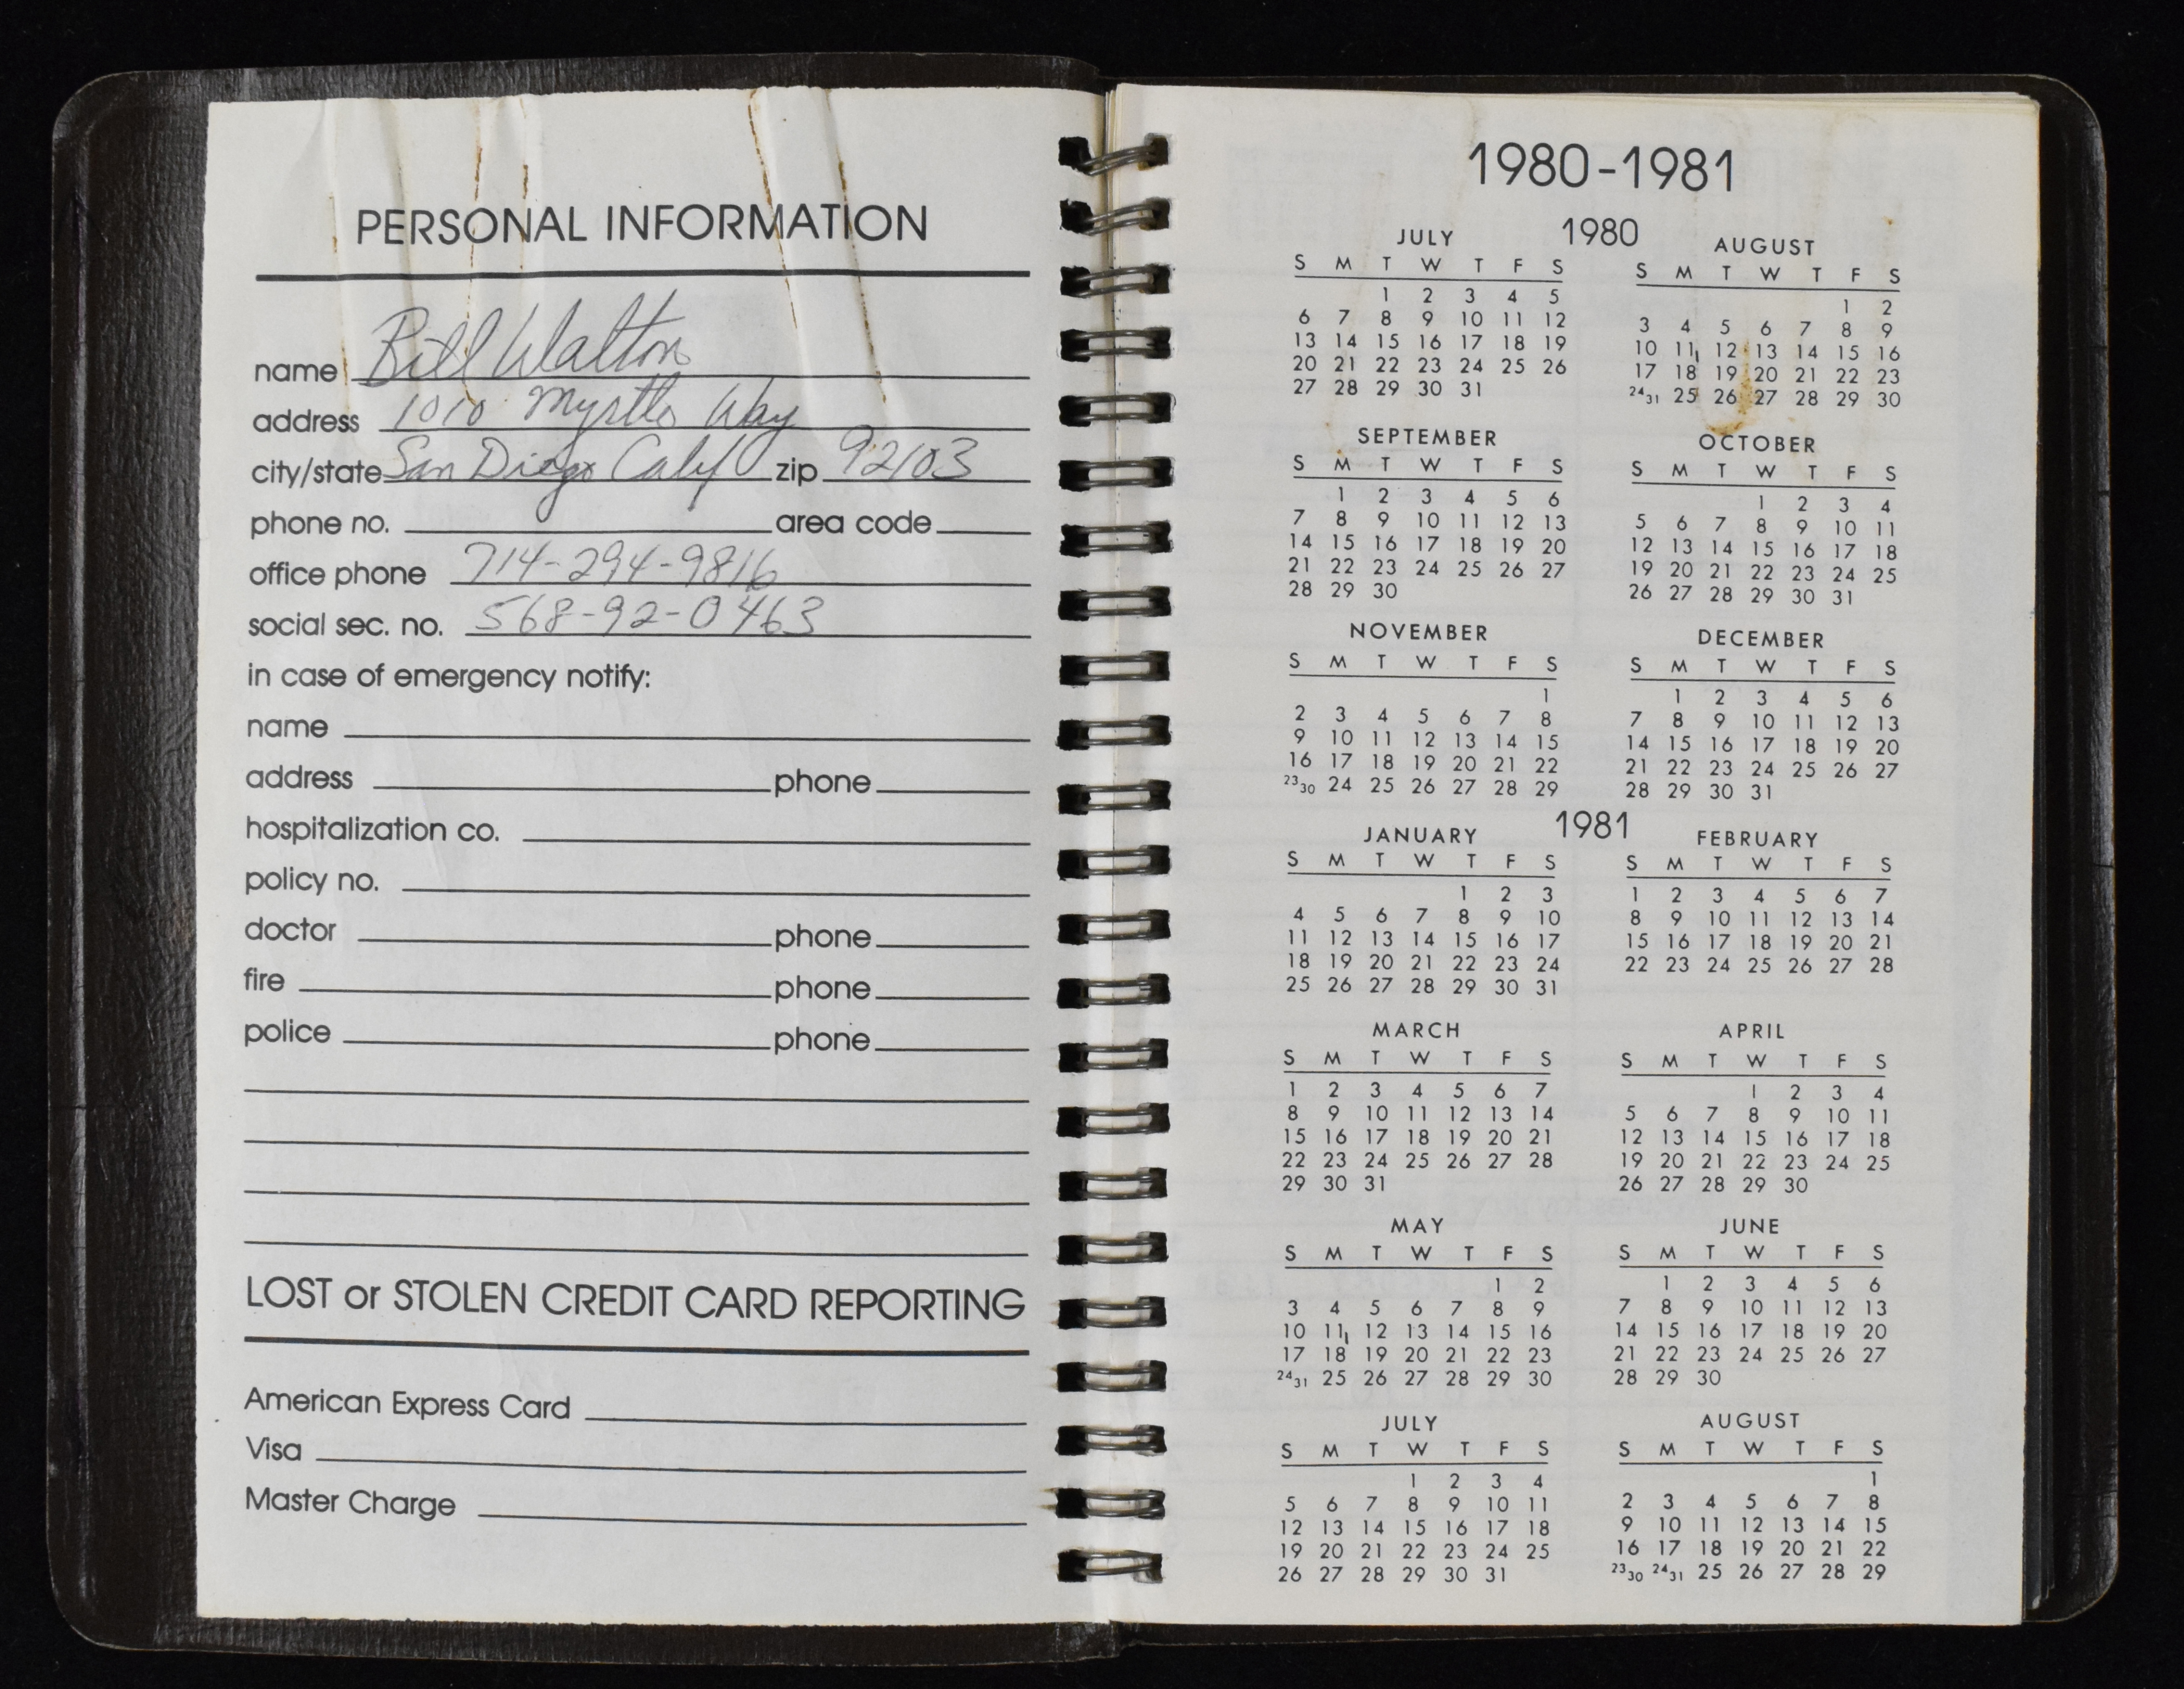 PERSONAL INFORMATION
name Bill Walton
address 1010 Myrtle Way
city/state San Diego Calif zip 92103
phone no. area code
office phone 714-294-9816
social sec. no. 568-92-0463
in case of emergency notify:
name
address phone
hospitalization co.
policy no.
doctor phone
fire phone
police phone
LOST or STOLEN CREDIT CARD REPORTING
American Express Card
Visa
Master Charge
1980-1981
1980
JULY
S M T W T F S
1 2 3 4 5
6 7 8 9 10 11 12
13 14 15 16 17 18 19
20 21 22 23 24 25 26
27 28 29 30 31
AUGUST
S M T W T F S
1 2
3 4 5 6 7 8 9
10 11 12 13 14 15 16
17 18 19 20 21 22 23
24 31 25 26 27 28 29 30
SEPTEMBER
S M T W T F S
1 2 3 4 5 6
7 8 9 10 11 12 13
14 15 16 17 18 19 20
21 22 23 24 25 26 27
28 29 30
OCTOBER
S M T W T F S
1 2 3 4
5 6 7 8 9 10 11
12 13 14 15 16 17 18
19 20 21 22 23 24 25
26 27 28 29 30 31
NOVEMBER
S M T W T F S
1
2 3 4 5 6 7 8
9 10 11 12 13 14 15
16 17 18 19 20 21 22
23 30 24 25 26 27 28 29
DECEMBER
S M T W T F S
1 2 3 4 5 6
7 8 9 10 11 12 13
14 15 16 17 18 19 20
21 22 23 24 25 26 27
28 29 30 31
1981
JANUARY
S M T W T F S
1 2 3
4 5 6 7 8 9 10
11 12 13 14 15 16 17
18 19 20 21 22 23 24
25 26 27 28 29 30 31
FEBRUARY
S M T W T F S
1 2 3 4 5 6 7
8 9 10 11 12 13 14
15 16 17 18 19 20 21
22 23 24 25 26 27 28
MARCH
S M T W T F S
1 2 3 4 5 6 7
8 9 10 11 12 13 14
15 16 17 18 19 20 21
22 23 24 25 26 27 28
29 30 31
APRIL
S M T W T F S
1 2 3 4
5 6 7 8 9 10 11
12 13 14 15 16 17 18
19 20 21 22 23 24 25
26 27 28 29 30
MAY
S M T W T F S
1 2
3 4 5 6 7 8 9
10 11 12 13 14 15 16
17 18 19 20 21 22 23
24 31 25 26 27 28 29 30
JUNE
S M T W T F S
1 2 3 4 5 6
7 8 9 10 11 12 13
14 15 16 17 18 19 20
21 22 23 24 25 26 27
28 29 30
JULY
S M T W T F S
1 2 3 4
5 6 7 8 9 10 11
12 13 14 15 16 17 18
19 20 21 22 23 24 25
26 27 28 29 30 31
AUGUST
S M T W T F S
1
2 3 4 5 6 7 8
9 10 11 12 13 14 15
16 17 18 19 20 21 22
23 30 24 31 25 26 27 28 29